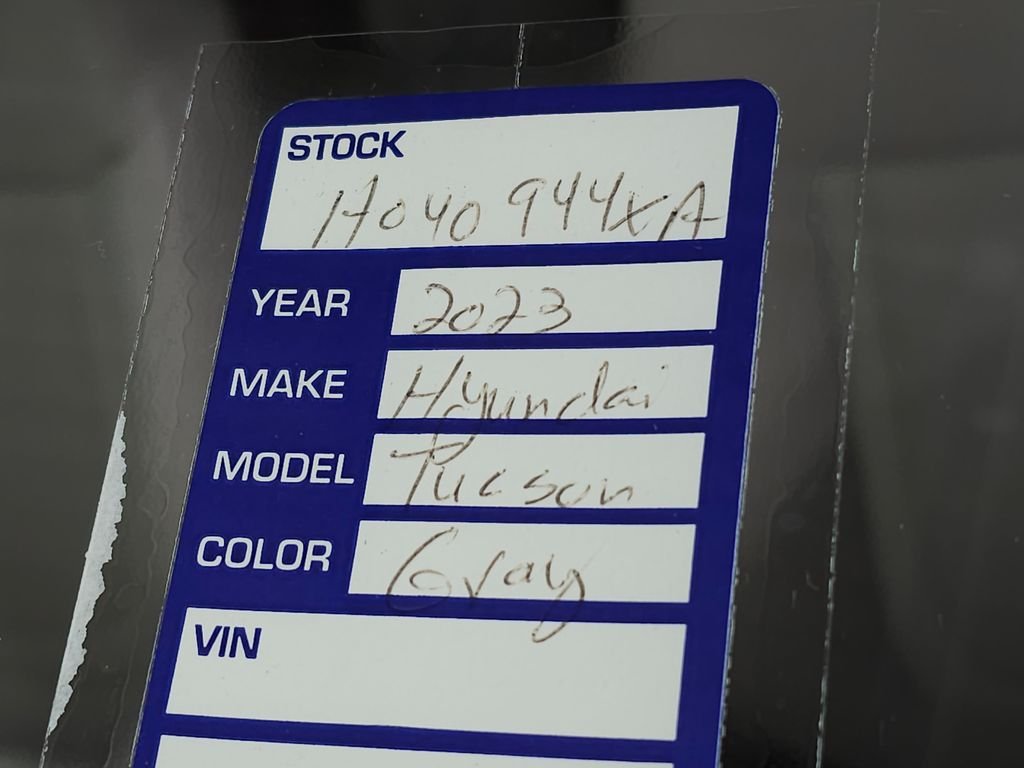 STOCK
H040944XA
YEAR 2023
MAKE Hyundai
MODEL Tucson
COLOR Gray
VIN